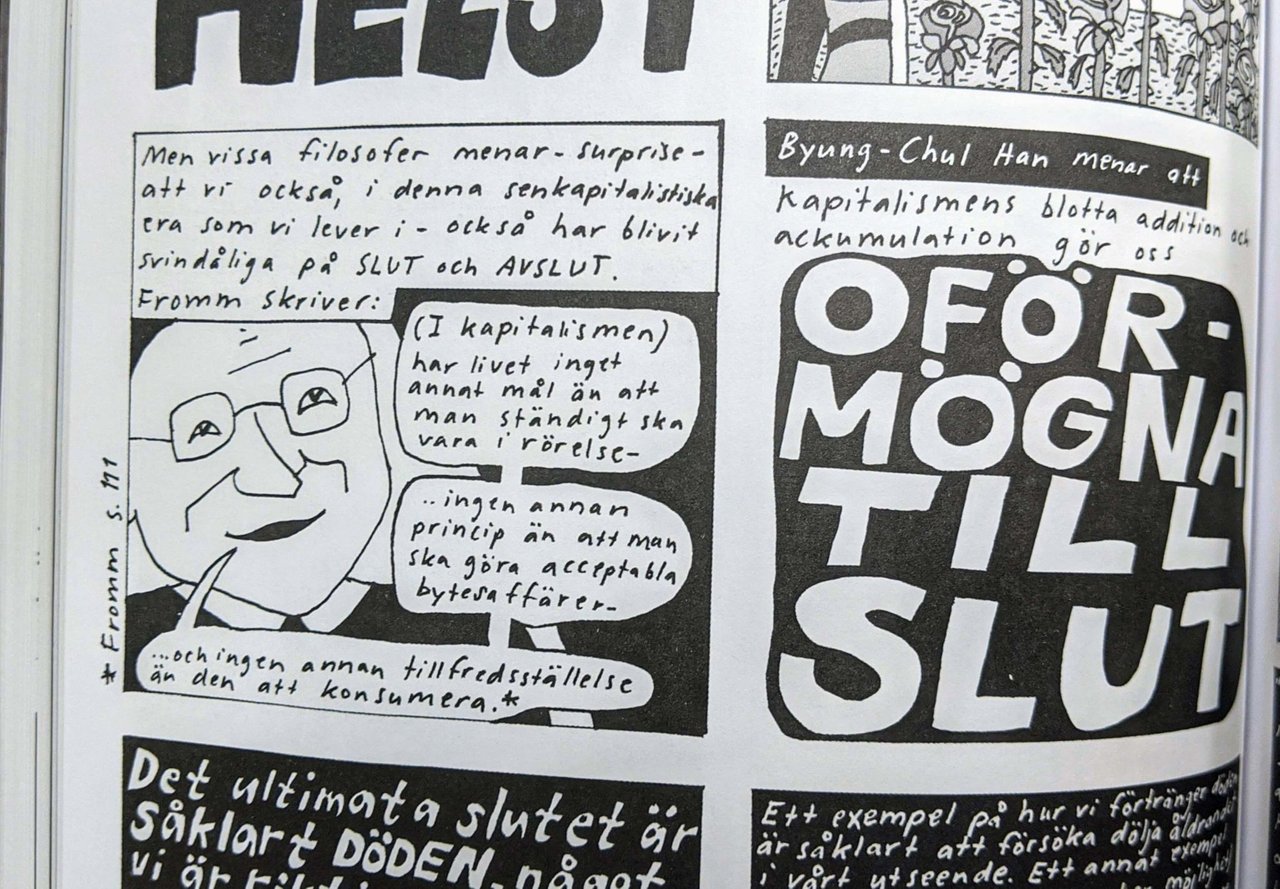 HELST
Men vissa filosofer menar - surprise -
att vi också, i denna senkapitalistiska
era som vi lever i - också har blivit
svindåliga på SLUT och AVSLUT.
Fromm skriver:
(I kapitalismen)
har livet inget
annat mål än att
man ständigt ska
vara i rörelse-
..ingen annan
princip än att man
ska göra acceptabla
bytesaffärer-
...och ingen annan tillfredsställelse
än den att konsumera.*
*Fromm s. 111
Byung-Chul Han menar att
kapitalismens blotta addition och
ackumulation gör oss
OFÖR-
MÖGNA
TILL
SLUT
Det ultimata slutet är
såklart DÖDEN, något
vi är
Ett exempel på hur vi förtränger döden
är såklart att försöka dölja åldrandet
i vårt utseende. Ett annat exempel